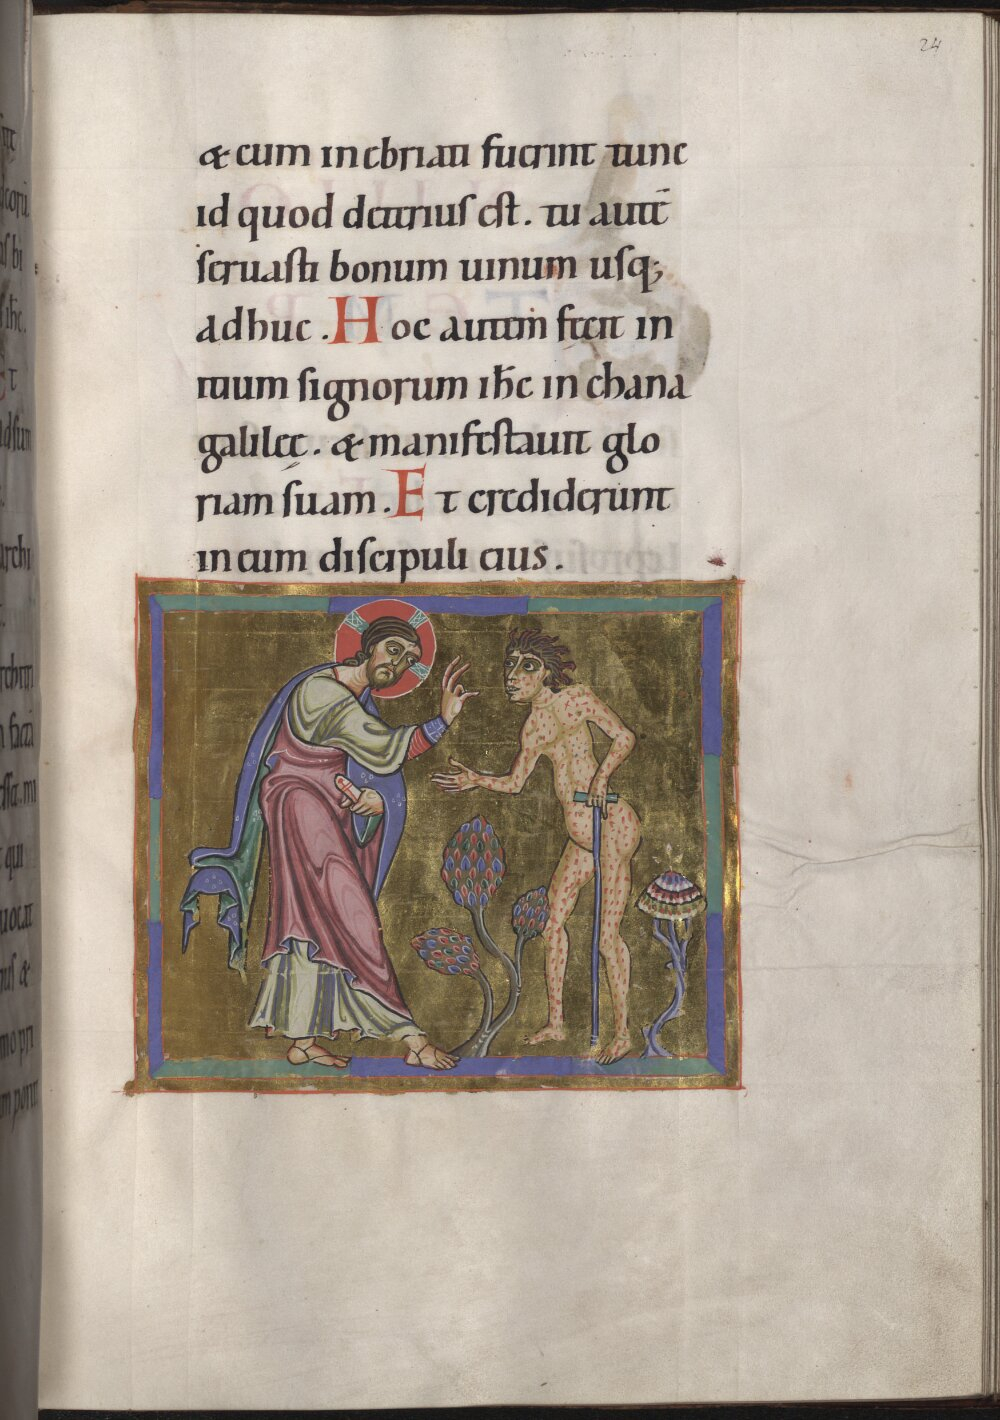 24
& cum inebriati fuerint tunc
id quod deterius est. tu autē
seruasti bonum uinum usq;
adhuc. Hoc autem fecit in
itium signorum ihc̄ in chana
galileę. & manifestauit glo
riam suam. Et crediderunt
in eum discipuli eius.